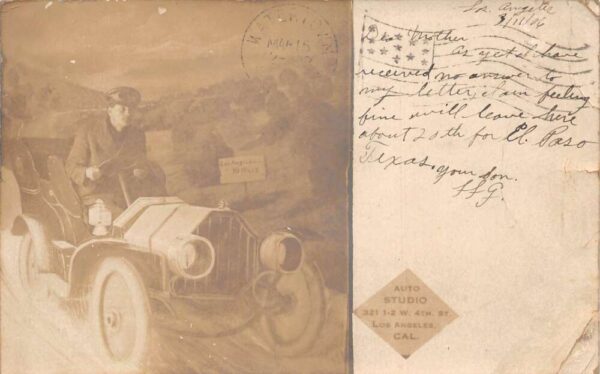 Los Angeles
3/11/06
Dear Mother
As yet I have
received no answer to
my letter, I am feeling
fine will leave here
about 20th for El Paso
Texas, your son.
MAR 15
Los Angeles
10 Miles
AUTO
STUDIO
321 1-2 W. 4TH. ST.
LOS ANGELES,
CAL.